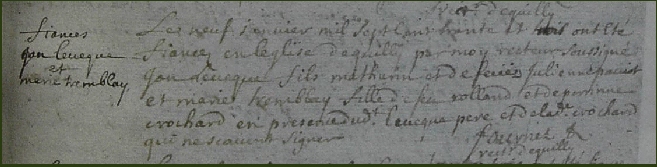 rect: d'equilly
fiances
jan leveque
et
marie tremblay
Le neuf janvier mil sept cens trante et trois ont été
fiancé en leglise dequilly par moy recteur soussigné
jan leveque fils mathurin et de feüe julienne paciot
et marie tremblay fille de feu rolland et de perrinne
crochard en presence dud.t leveque pere et de lad.te crochard
qui ne scavent signer
fournet
rectr dequilly